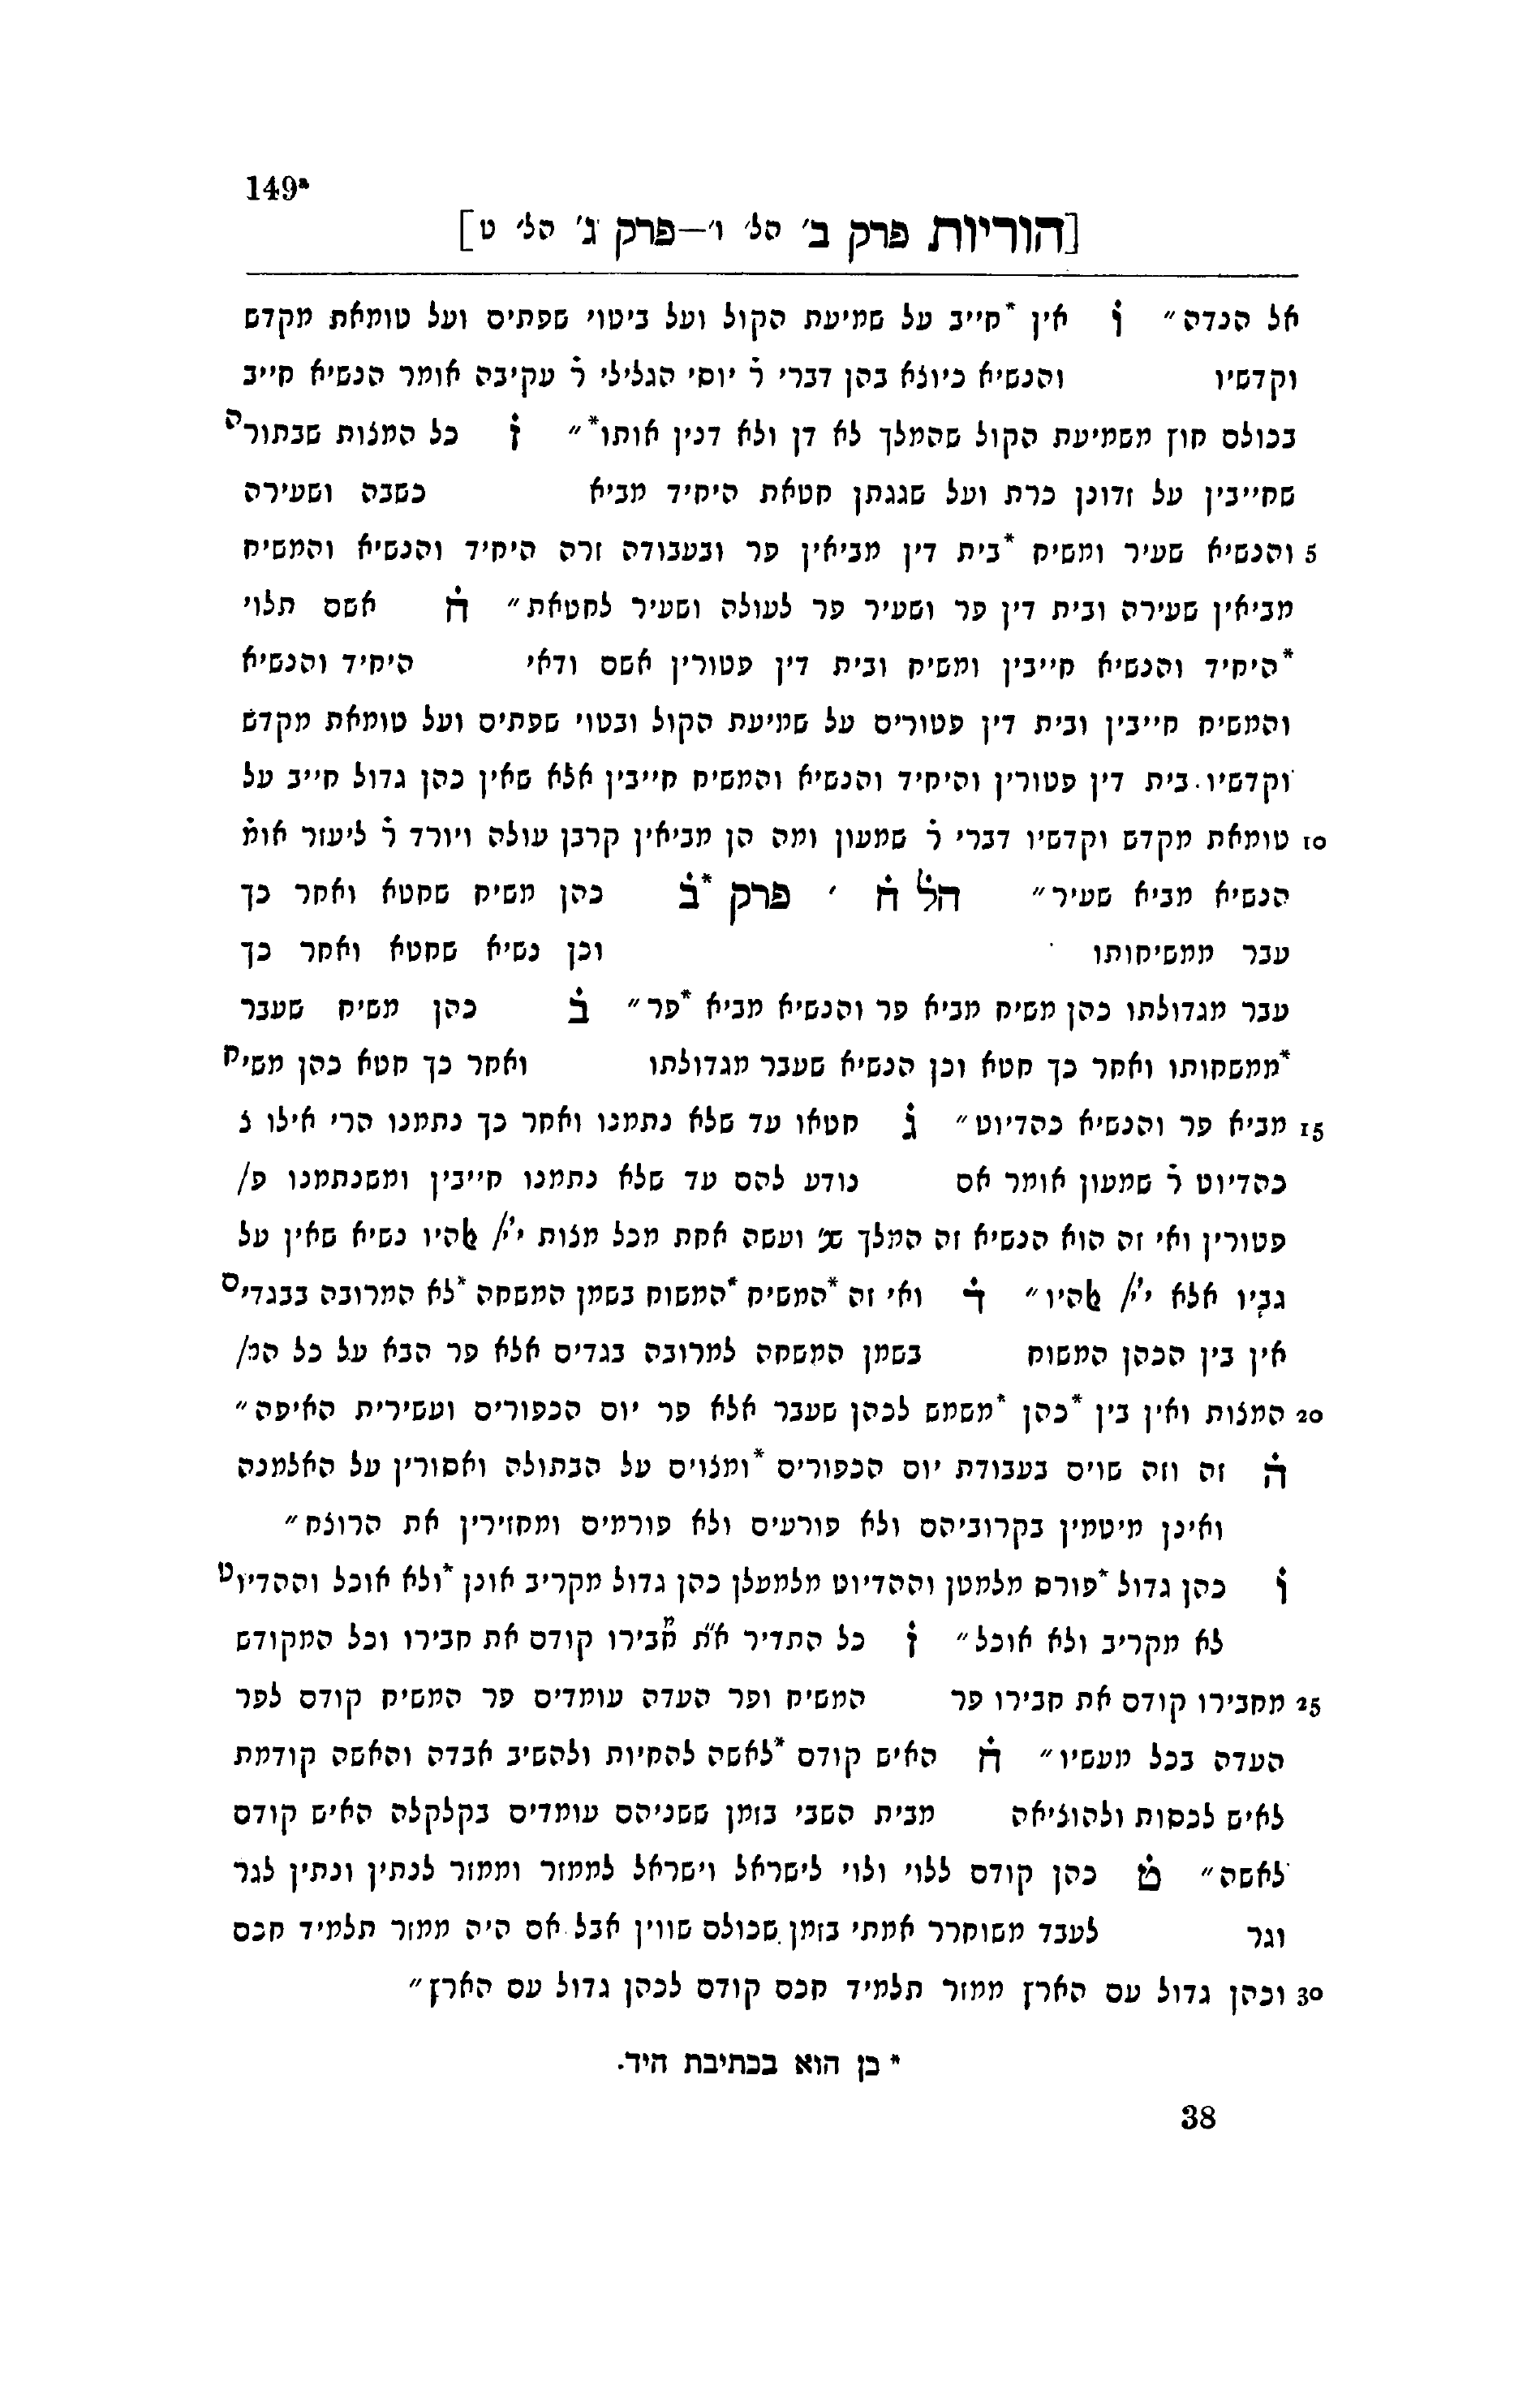 149ª
[הוריות פרק ב׳ הל׳ ו׳—פרק ג׳ הל׳ ט]
אל הנדה״ ו אין *חייב על שמיעת הקול ועל ביטוי שפתים ועל טומאת מקדש
וקדשיו והנשיא כיוצא בהן דברי ר יוסי הגלילי ר עקיבה אומר הנשיא חייב
בכולם חוץ משמיעת הקול שהמלך לא דן ולא דנין אותו*״ ז כל המצות שבתורה
שחייבין על זדונן כרת ועל שגגתן חטאת היחיד מביא כשבה ושעירה
5 והנשיא שעיר ומשיח *בית דין מביאין פר ובעבודה זרה היחיד והנשיא והמשיח
מביאין שעירה ובית דין פר ושעיר פר לעולה ושעיר לחטאת״ ח אשם תלוי
*היחיד והנשיא חייבין ומשיח ובית דין פטורין אשם ודאי היחיד והנשיא
והמשיח חייבין ובית דין פטורים על שמיעת הקול ובטוי שפתים ועל טומאת מקדש
וקדשיו. בית דין פטורין והיחיד והנשיא והמשיח חייבין אלא שאין כהן גדול חייב על
10 טומאת מקדש וקדשיו דברי ר שמעון ומה הן מביאין קרבן עולה ויורד ר ליעזר אומ
הנשיא מביא שעיר״ הל ח ׳ פרק *ב כהן משיח שחטא ואחר כך
עבר ממשיחותו וכן נשיא שחטא ואחר כך
עבר מגדולתו כהן משיח מביא פר והנשיא מביא *פר״ ב כהן משיח שעבר
*ממשחותו ואחר כך חטא וכן הנשיא שעבר מגדולתו ואחר כך חטא כהן משיח
15 מביא פר והנשיא כהדיוט״ ג חטאו עד שלא נתמנו ואחר כך נתמנו הרי אילו צ
כהדיוט ר שמעון אומר אם נודע להם עד שלא נתמנו חייבין ומשנתמנו פ/
פטורין ואי זה הוא הנשיא זה המלך שנ׳ ועשה אחת מכל מצות י׳י/ אלהיו נשיא שאין על
גביו אלא י׳י/ אלהיו״ ד ואי זה *המשיח *המשוח בשמן המשחה *לא המרובה בבגדים
אין בין הכהן המשוח בשמן המשחה למרובה בגדים אלא פר הבא על כל המ/
20 המצות ואין בין *כהן *משמש לכהן שעבר אלא פר יום הכפורים ועשירית האיפה״
ה זה וזה שוים בעבודת יום הכפורים *ומצוים על הבתולה ואסורין על האלמנה
ואינן מיטמין בקרוביהם ולא פורעים ולא פורמים ומחזירין את הרוצח״
ו כהן גדול *פורם מלמטן וההדיוט מלמעלן כהן גדול מקריב אונן *ולא אוכל וההדיוט
לא מקריב ולא אוכל״ ז כל התדיר א״ת מחבירו קודם את חבירו וכל המקודש
25 מחבירו קודם את חבירו פר המשיח ופר העדה עומדים פר המשיח קודם לפר
העדה בכל מעשיו״ ח האיש קודם *לאשה להחיות ולהשיב אבדה והאשה קודמת
לאיש לכסות ולהוציאה מבית השבי בזמן ששניהם עומדים בקלקלה האיש קודם
לאשה״ ט כהן קודם ללוי ולוי לישראל וישראל לממזר וממזר לנתין ונתין לגר
וגר לעבד משוחרר אמתי בזמן שכולם שווין אבל אם היה ממזר תלמיד חכם
30 וכהן גדול עם הארץ ממזר תלמיד חכם קודם לכהן גדול עם הארץ״
* כן הוא בכתיבת היד.
38